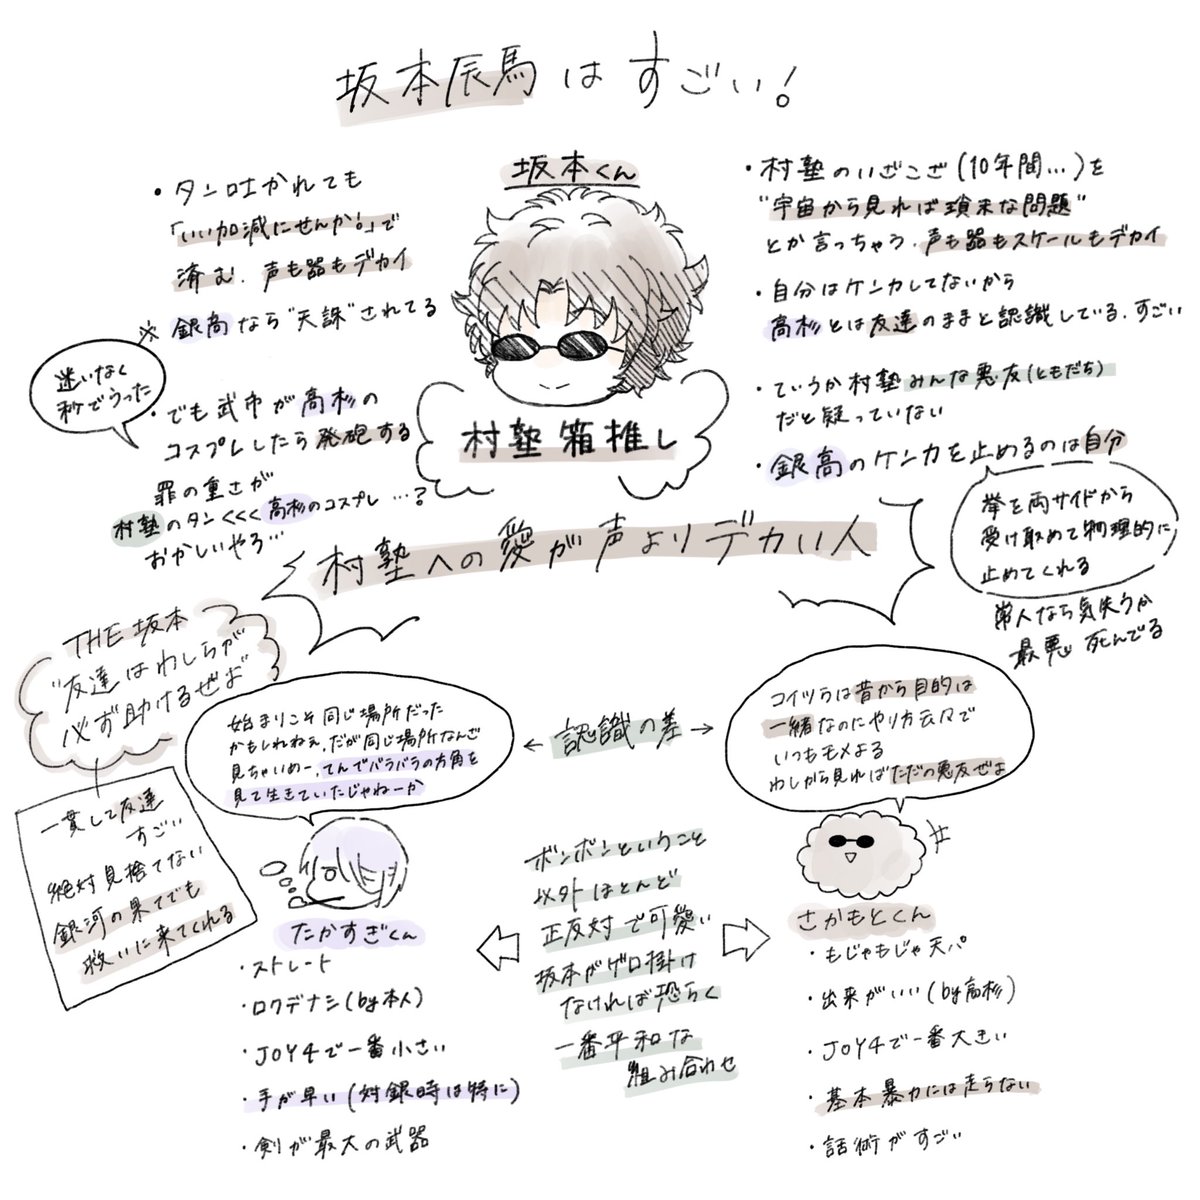 坂本辰馬はすごい!
坂本くん
村塾箱推し
・タン吐かれても
「いい加減にせんか!」で
済む、声も器もデカイ
※銀高なら"天誅"されてる
迷いなく
秒でうった
・でも武市が高杉の
コスプレしたら発砲する
罪の重さが
村塾のタン<<<高杉のコスプレ…?
おかしいやろ…
・村塾のいざこざ(10年間…)を
"宇宙から見れば瑣末な問題"
とか言っちゃう、声も器もスケールもデカイ
・自分はケンカしてないから
高杉とは友達のままと認識している、すごい
・ていうか村塾みんな悪友(ともだち)
だと疑っていない
・銀高のケンカを止めるのは自分
拳を両サイドから
受け取めて物理的に
止めてくれる
常人なら気失うか
最悪 死んでる
村塾への愛が声よりデカい人
THE 坂本
"友達はわしらが
必ず助けるぜよ"
一貫して友達
すごい
絶対見捨てない
銀河の果てでも
救いに来てくれる
始まりこそ同じ場所だった
かもしれねェ、だが同じ場所なんざ
見ちゃいめー、てんでバラバラの方角を
見て生きていたじゃねーか
← 認識の差 →
コイツらは昔から目的は
一緒なのにやり方云々で
いつもモメよる
わしから見ればただの悪友ぜよ
たかすぎくん
・ストレート
・ロクデナシ(by本人)
・JOY4で一番小さい
・手が早い(対銀時は特に)
・剣が最大の武器
ボンボンということ
以外ほとんど
正反対で可愛い
坂本がゲロ掛け
なければ恐らく
一番平和な
組み合わせ
さかもとくん
・もじゃもじゃ天パ
・出来がいい(by高杉)
・JOY4で一番大きい
・基本暴力には走らない
・話術がすごい